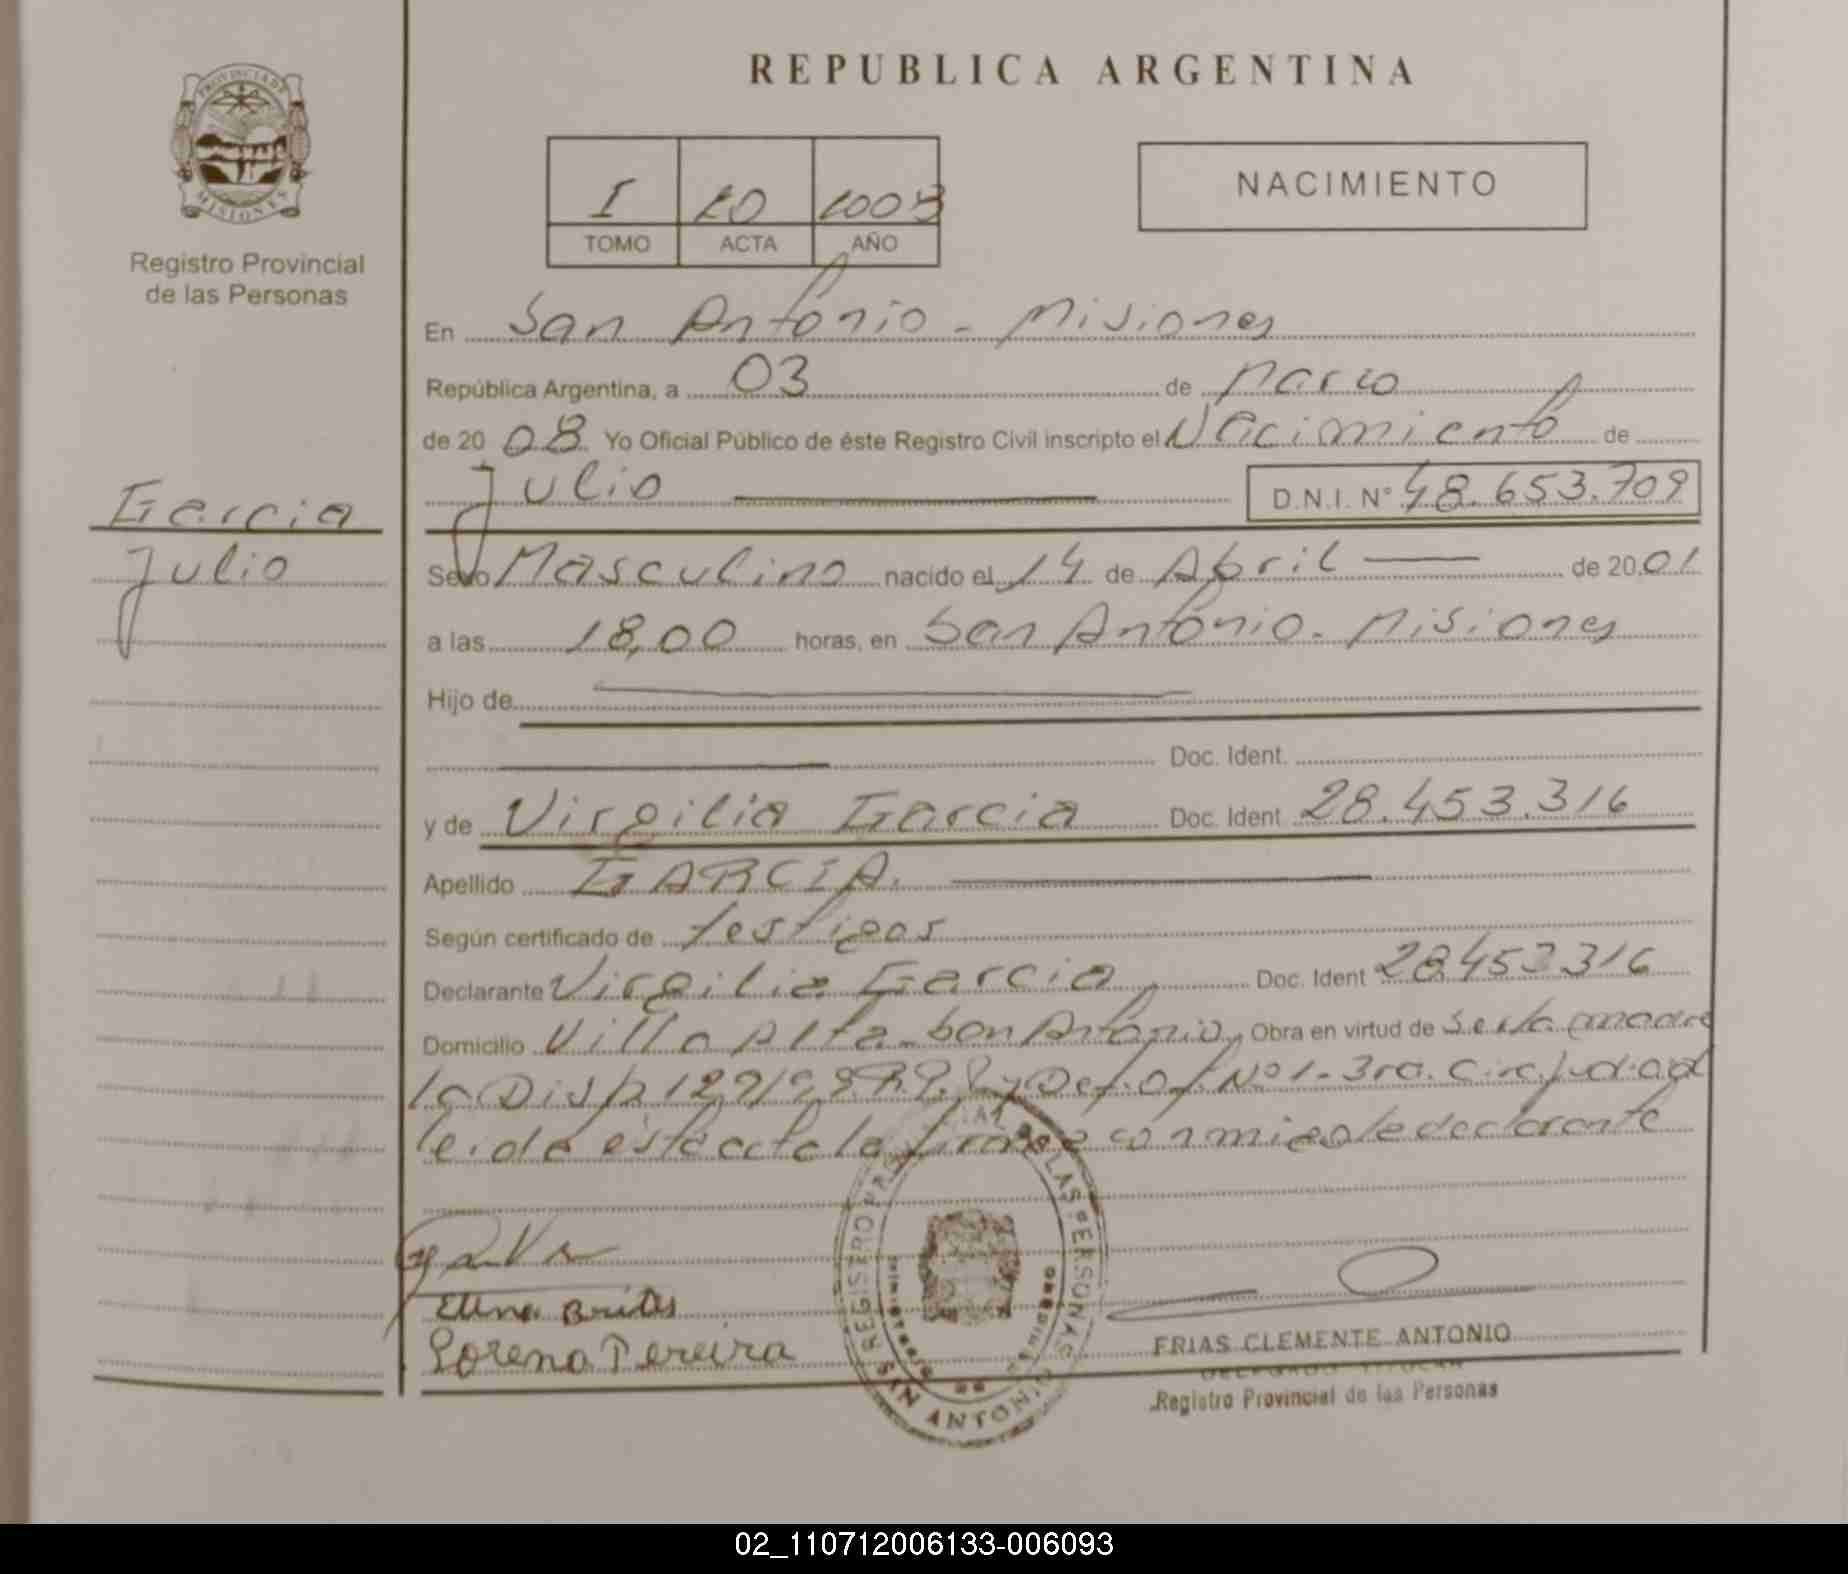 REPUBLICA ARGENTINA
PROVINCIA DE
MISIONES
Registro Provincial
de las Personas
I
TOMO ACTA AÑO
NACIMIENTO
En San Antonio - Misiones
República Argentina, a 03 de Marzo
de 20 08 Yo Oficial Público de éste Registro Civil inscripto el Nacimiento de
Julio D.N.I. N° 48.653.709
Garcia
Julio
Sexo Masculino nacido el 14 de Abril de 20 01
a las 18,00 horas, en San Antonio - Misiones
Hijo de
Doc. Ident.
y de Virgilia Garcia Doc. Ident 28.453.316
Apellido GARCIA.
Según certificado de testigos
Declarante Virgilia Garcia Doc. Ident 28453316
Domicilio Villa Alta - San Antonio Obra en virtud de ser la madre
la Disp. Def. Of. N° 1 - 3ra. Circ. Judicial
leida este acta la firma conmigo la declarante
Elina Britos
Lorena Pereira
REGISTRO PROVINCIAL DE LAS PERSONAS
SAN ANTONIO
FRIAS CLEMENTE ANTONIO
DELEGADO TITULAR
Registro Provincial de las Personas
02_110712006133-006093